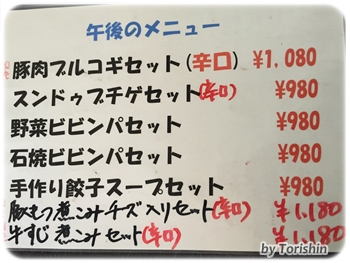 午後のメニュー
豚肉プルコギセット(辛口) ¥1,080
スンドゥブチゲセット(辛口) ¥980
野菜ビビンパセット ¥980
石焼ビビンパセット ¥980
手作り餃子スープセット ¥980
豚もつ煮こみチーズ入りセット(辛口) ¥1,180
牛すじ煮こみセット(辛口) ¥1,180
by Torishin